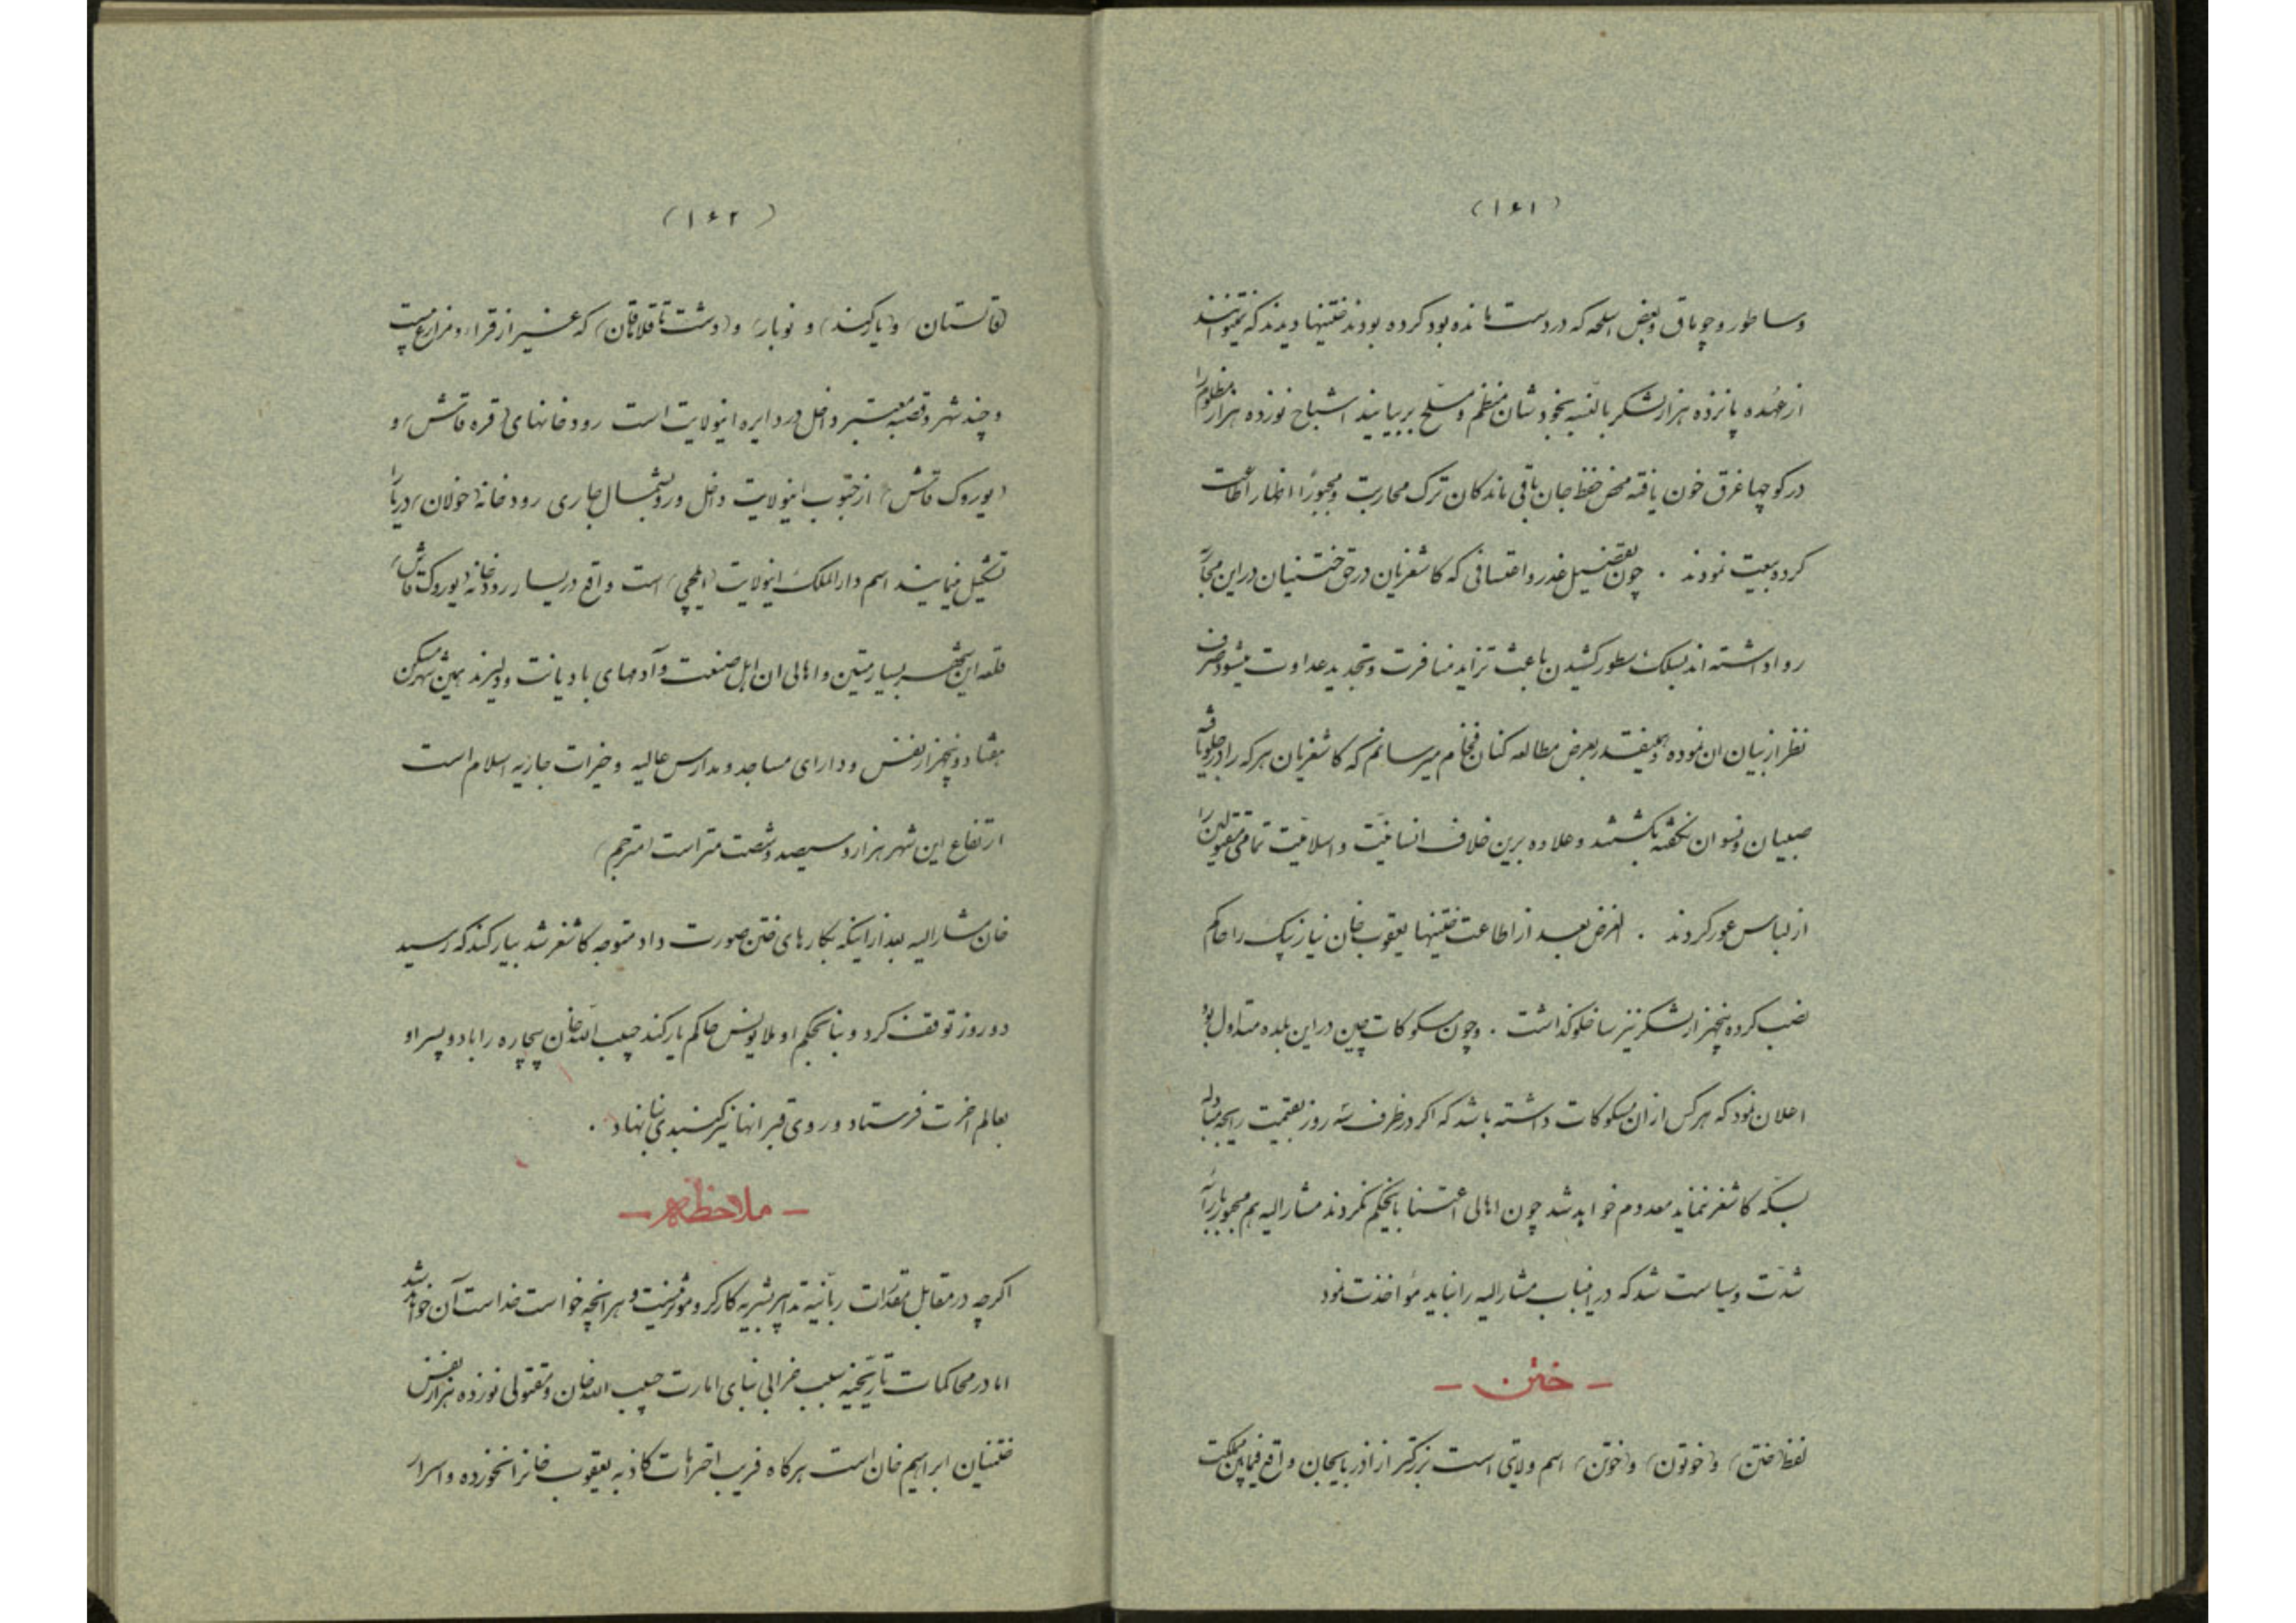 (۱۶۱)
وساطور و چوماق و بعض اسلحه که در دست مانده بود کرده بودند ختنیها دیدند که نمیتوانند
از عهده پانزده هزار لشکر بالنسبه بخودشان منظم و مسلح بربیایند اشباح نوزده هزار مظلوم را
در کوچها غرق خون یافته محض حفظ جان باقی ماندکان ترک محاربت و مجبوراً اظهار اطاعت
کرده بیعت نمودند . چون تفصیل غدر و اعتسافی که کاشغریان در حق ختنیان در این محاربه
روا داشته اند بسلک سطور کشیدن باعث تزاید منافرت و تجدید عداوت میشود صرف
نظر از بیان ان نموده و همینقدر بعرض مطالعه کنان فخام میرسانم که کاشغریان هر که را در جلو یافته
صبیان و نسوان نکفته بکشتند و علاوه برین خلاف انسانیت و اسلامیت تمامی مقتولین را
از لباس عور کردند . الغرض بعد از اطاعت ختنیها یعقوب خان نیاز بیک را حاکم
نصب کرده پنجهزار لشکر نیز ساخلو کذاشت . و چون مسکوکات چین در این بلده متداول بود
اعلان نمود که هر کس از ان مسکوکات داشته باشد که اکر در ظرف سه روز بقیمت رایجه مبادله
بسکه کاشغر ننماید معدوم خواهد شد چون اهالی اعتنا باینحکم نکردند مشارالیه هم مجبور بارائه
شدت و سیاست شد که در اینباب مشارالیه را نباید مؤاخذت نمود
- ختن -
لفظ (ختن) و (خوتون) و (خوتن) اسم ولایتی است بزرکتر از اذربایجان و واقع فیمابین مملکت
(۱۶۲)
و (یارکند) و نوبار) و (دشت تاقلاقان) که غیر از قراء و مزارع بیست
و چند شهر و قصبه معتبر داخل در دایره اینولایت است رودخانهای (قره قاش) و
(یوروک قاش) از جنوب اینولایت داخل و رو بشمال جاری رودخانه (خولان) دریا را
تشکیل مینمایند اسم دارالملک اینولایت (ایلچی) است واقع در یسار رودخانه (یوروک قاش)
قلعه این شهر بسیار متین و اهالی ان اهل صنعت و آدمهای با دیانت و دلیرند همین شهر مسکن
هفتاد و پنجهزار نفس و دارای مساجد و مدارس عالیه و خیرات جاریه اسلام است
ارتفاع این شهر هزار و سیصد و شصت متر است (مترجم)
خان مشارالیه بعد از اینکه بکارهای ختن صورت داد متوجه کاشغر شد بیارکند که رسید
دو روز توقف کرد و بنا بحکم او ملا یونس حاکم یارکند حبیب الله خان بیچاره را با دو پسر او
بعالم اخرت فرستاد و روی قبر انها نیز کنبدی بنا نهاد .
- ملاحظه -
اکرچه در مقابل مقدرات ربانیه تدابیر بشریه کارکر و مؤثر نیست و هر انچه خواست خداست آن خواهد شد
اما در محاکمات تاریخیه سبب خرابی بنای امارت حبیب الله خان و مقتولی نوزده هزار نفس
ختنیان ابراهیم خان است هرکاه فریب اخترات کاذبه یعقوب خانرا نخورده و اسرار